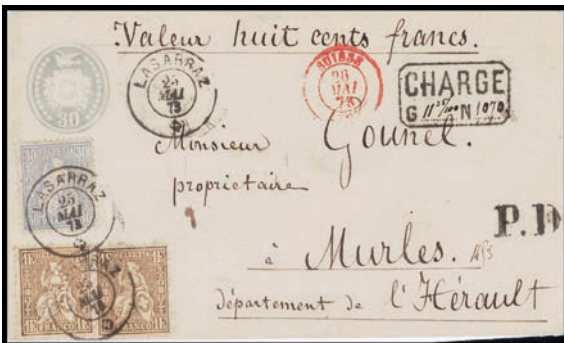 Valeur huit cents francs.
30
LASARRAZ
25
MAI
73
SUISSE
26
MAI
73
CHARGÉ
G N 1070.
Monsieur Gounel.
propriétaire
LASARRAZ
25
MAI
73
P.D
à Murles.
département de l'Hérault
FRANCO
FRANCO